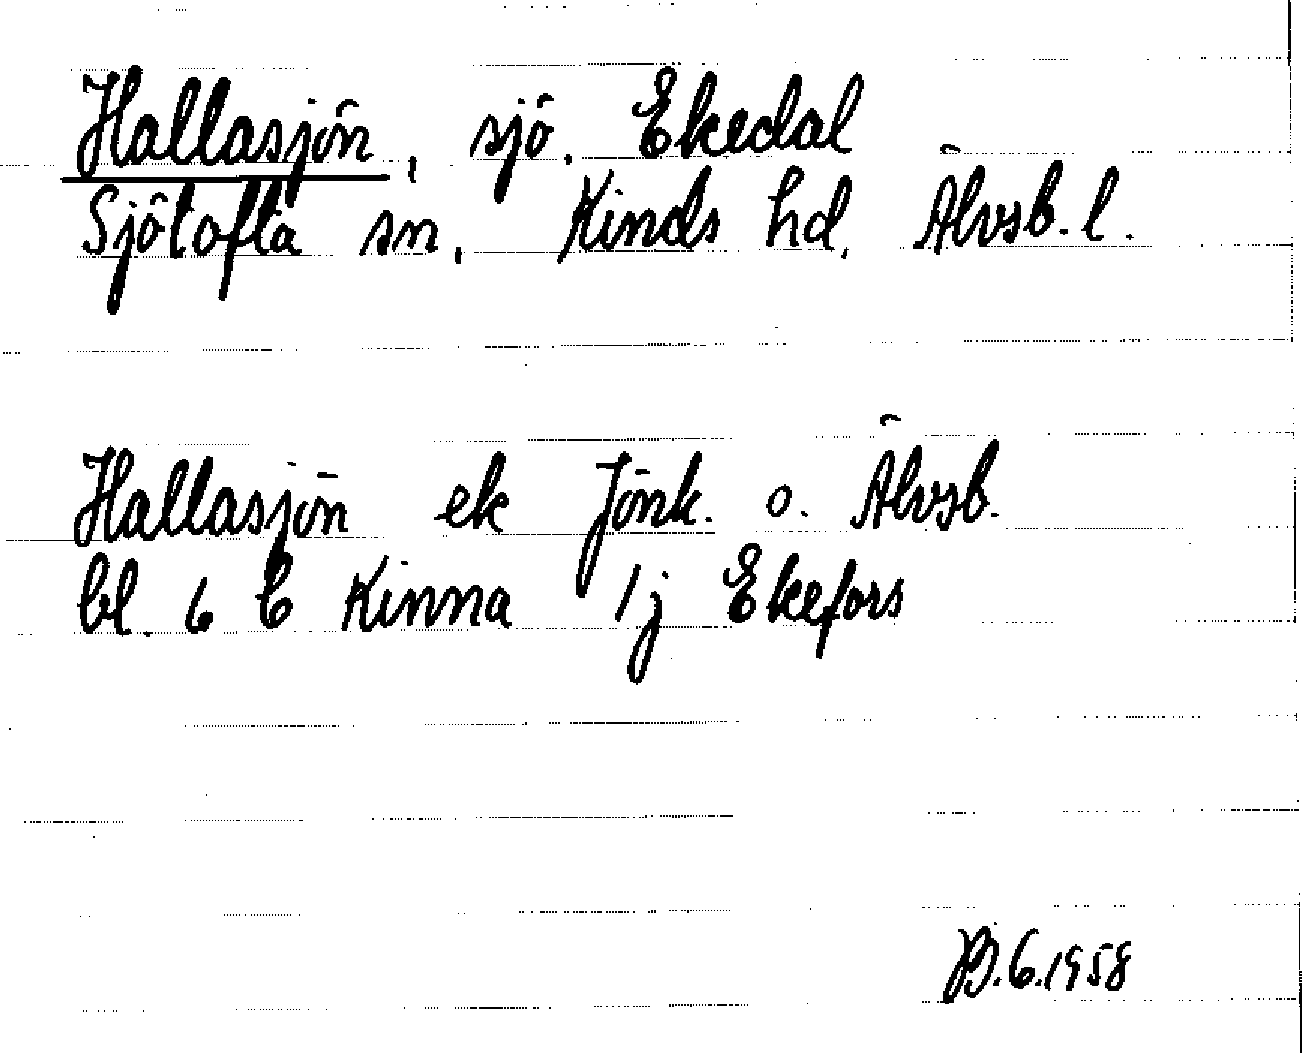 Hallasjön, sjö. Ekedal
Sjötofta sn, Kinds hd, Älvsb. l.
Hallasjön ek Jönk. o. Älvsb.
bl. 6 C Kinna 1j Ekefors
6.1958